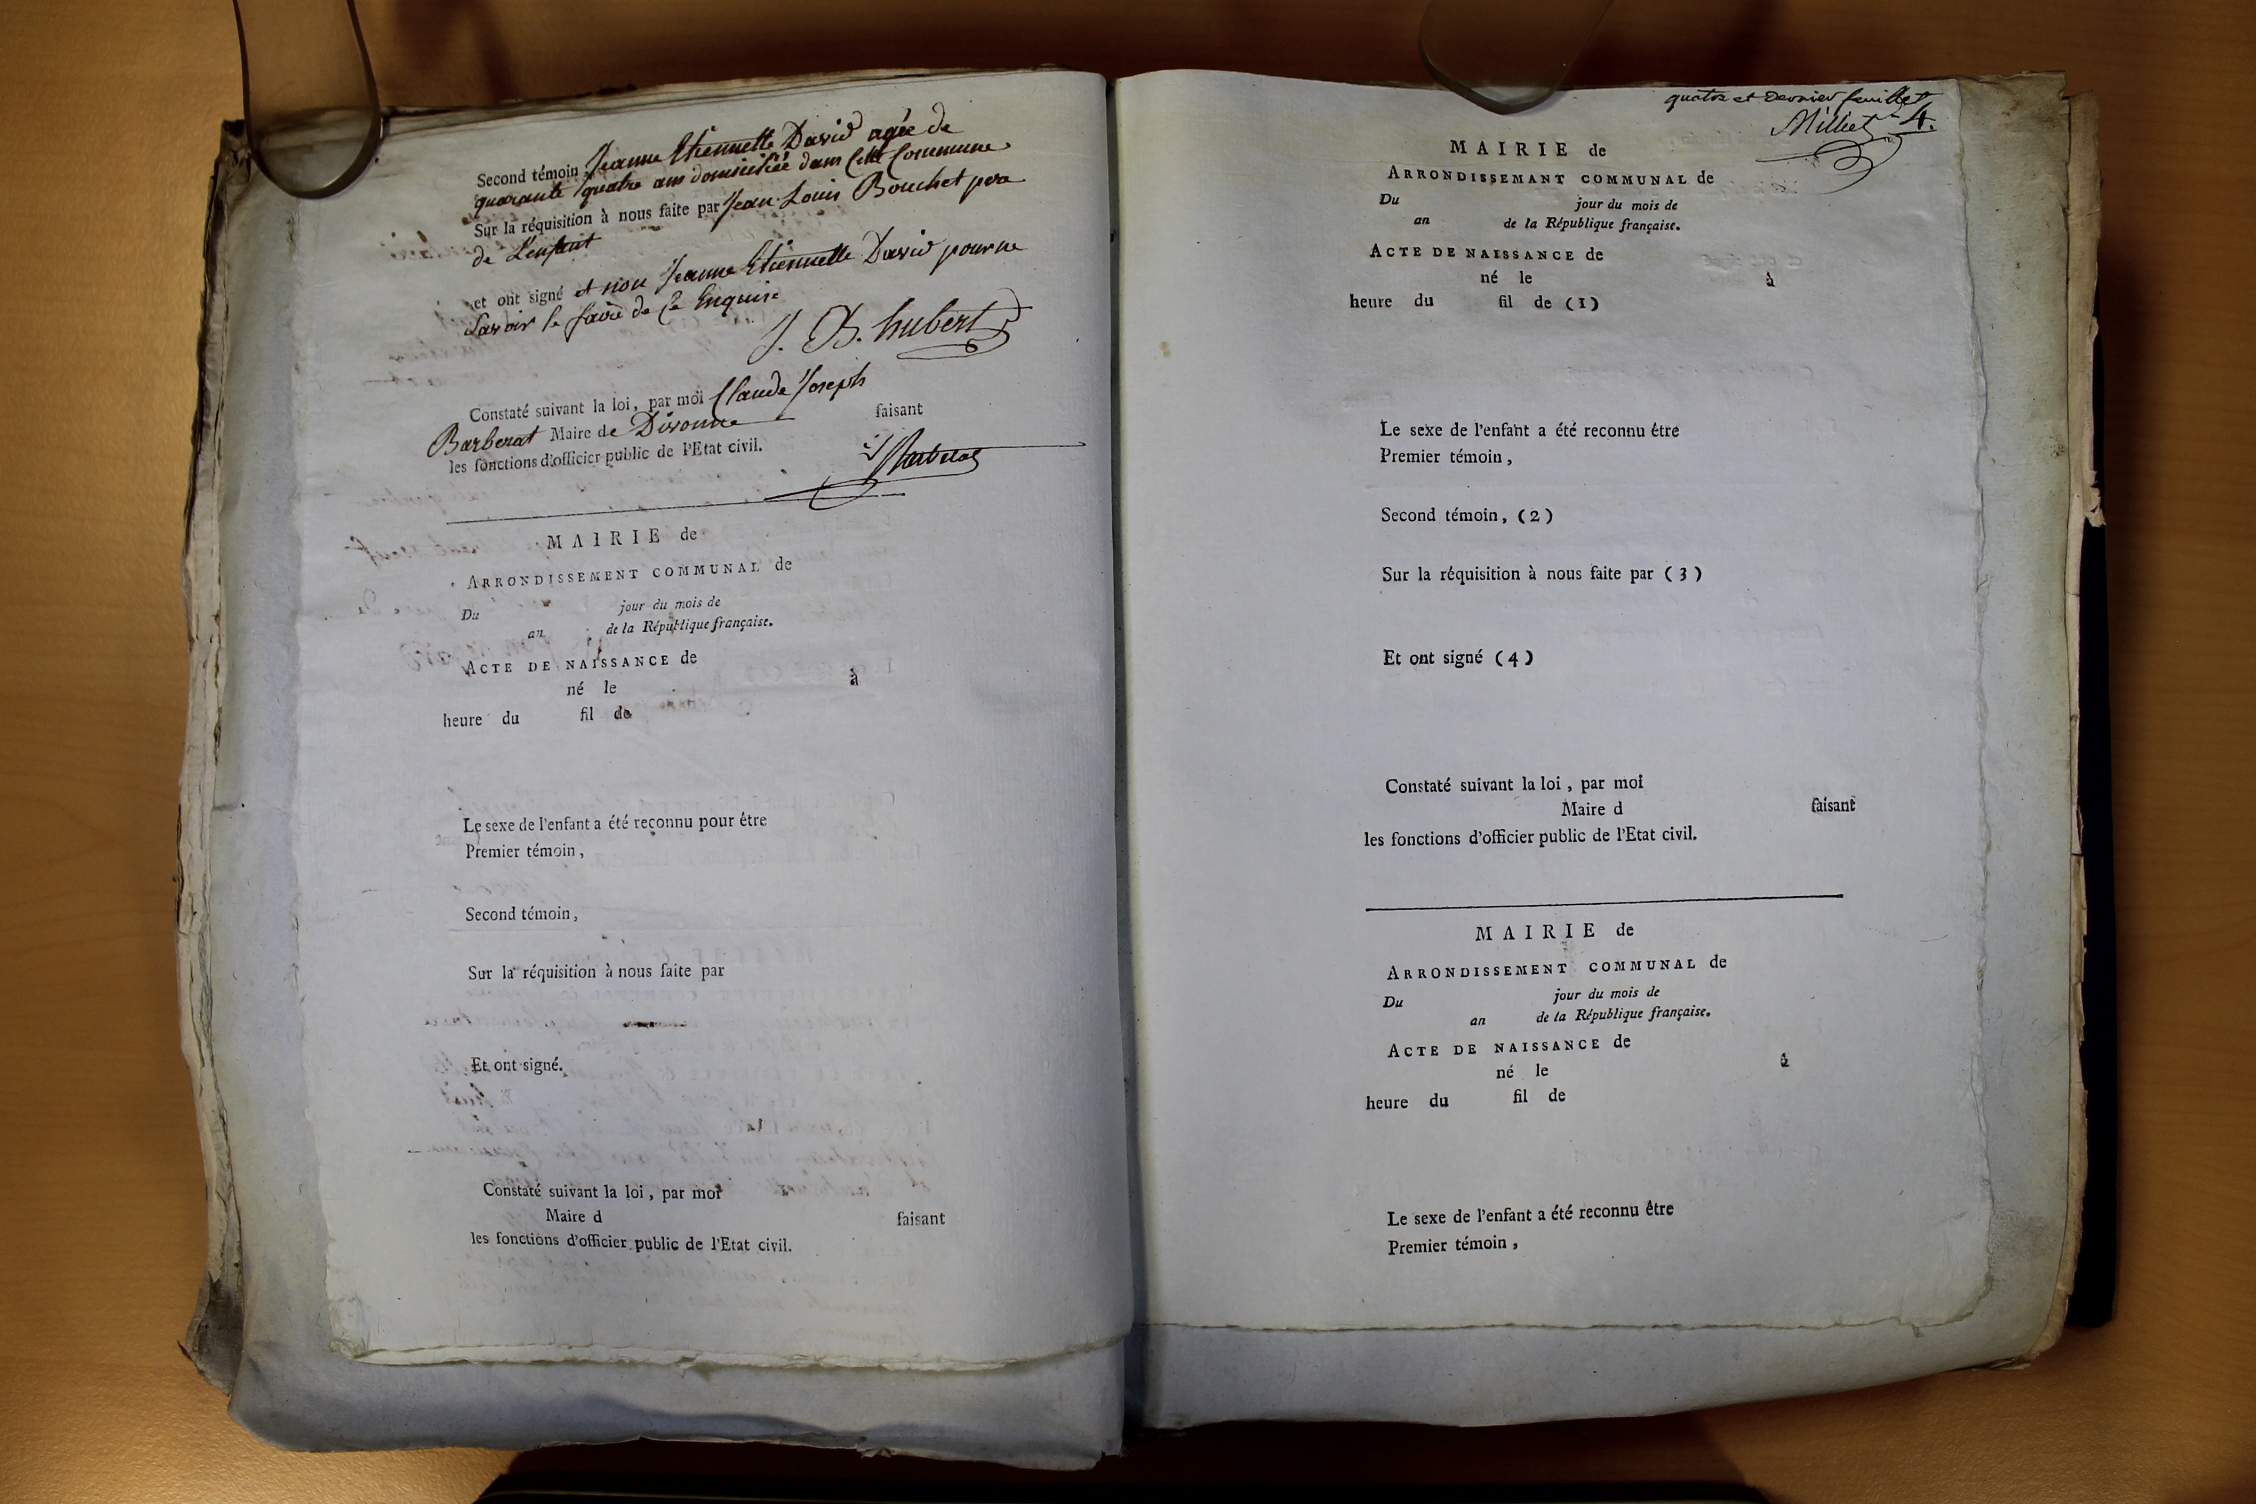 Second témoin, Jeanne Etiennette David agée de
quarante quatre ans domiciliée dans Cette Commune
Sur la réquisition à nous faite par Jean Louis Bouchet pere
de L'enfant
et ont signé et non Jeanne Etiennette David pour ne
Savoir le faire de Ce Enquise
J. B. hubert
Constaté suivant la loi, par moi Claude Joseph
Barberat Maire de Divonne faisant
les fonctions d'officier public de l'Etat civil.
Barberat
MAIRIE de
ARRONDISSEMENT COMMUNAL de
Du jour du mois de
an de la République française.
ACTE DE NAISSANCE de
né le à
heure du fil de
Le sexe de l'enfant a été reconnu pour être
Premier témoin,
Second témoin,
Sur la réquisition à nous faite par
Et ont signé.
Constaté suivant la loi, par moi
Maire d faisant
les fonctions d'officier public de l'Etat civil.
quatre et dernier feuillet
Milliet 4.
MAIRIE de
ARRONDISSEMANT COMMUNAL de
Du jour du mois de
an de la République française.
ACTE DE NAISSANCE de
né le à
heure du fil de (1)
Le sexe de l'enfant a été reconnu être
Premier témoin,
Second témoin, (2)
Sur la réquisition à nous faite par (3)
Et ont signé (4)
Constaté suivant la loi, par moi
Maire d faisant
les fonctions d'officier public de l'Etat civil.
MAIRIE de
ARRONDISSEMENT COMMUNAL de
Du jour du mois de
an de la République française.
ACTE DE NAISSANCE de
né le à
heure du fil de
Le sexe de l'enfant a été reconnu être
Premier témoin,